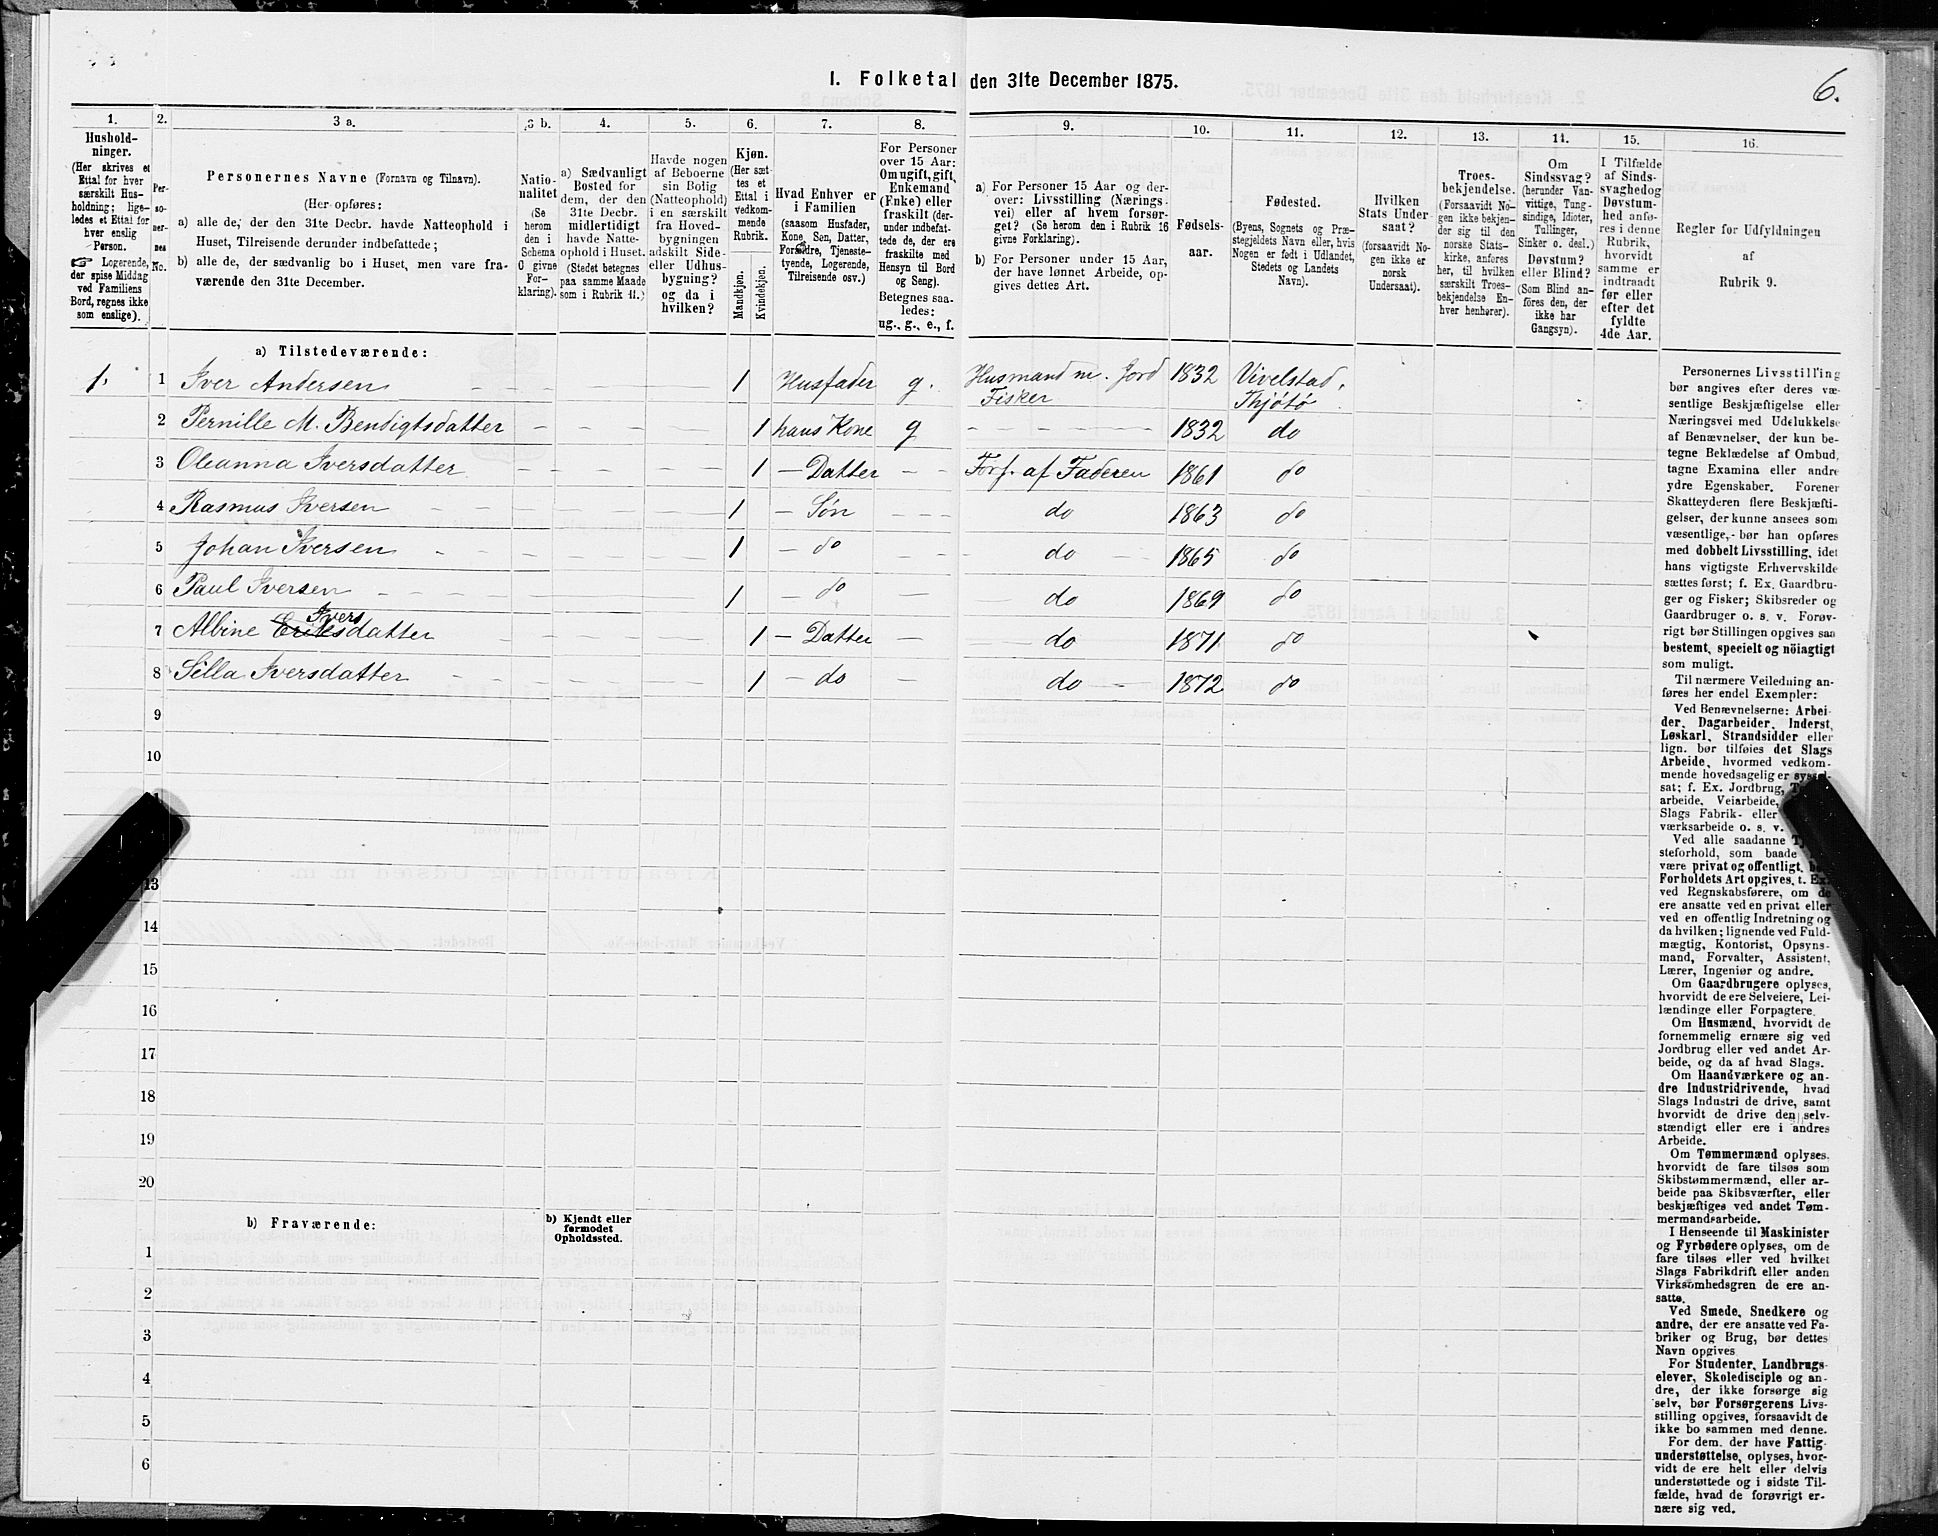 6.
I. Folketal den 31te December 1875.
1.
Hushold-
ninger.
(Her skrives et
Ettal for hver
særskilt Hus-
holdning; lige-
ledes et Ettal for
hver enslig
Person.
☞ Logerende,
der spise Middag
ved Familiens
Bord, regnes ikke
som enslige).
2.
Per-
so-
ner-
nes
No.
3 a.
Personernes Navne (Fornavn og Tilnavn).
(Her opføres:
a) alle de, der den 31te Decbr. havde Natteophold i
Huset, Tilreisende derunder indbefattede;
b) alle de, der sædvanlig bo i Huset, men vare fra-
værende den 31te December.
3 b.
Natio-
nalitet
(Se
herom
den i
Schema
0 givne
For-
klaring).
4.
a) Sædvanligt
Bosted for
dem, der den
31te Decbr.
midlertidigt
havde Natte-
ophold i Huset.
(Stedet betegnes
paa samme Maade
som i Rubrik 11.)
5.
Havde nogen
af Beboerne
sin Bolig
(Natteophold)
i en særskilt
fra Hoved-
bygningen
adskilt Side-
eller Udhus-
bygning?
og da i
hvilken?
6.
Kjøn.
(Her sæt-
tes et
Ettal i
vedkom-
mende
Rubrik.
Mandkjøn.
Kvindekjøn.
7.
Hvad Enhver er
i Familien
(saasom Husfader,
Kone, Søn, Datter,
Forældre, Tjeneste-
tyende, Logerende,
Tilreisende osv.)
8.
For Personer
over 15 Aar:
Om ugift, gift,
Enkemand
(Enke) eller
fraskilt (der-
under indbefat-
tede de, der ere
fraskilte med
Hensyn til Bord
og Seng).
Betegnes saa-
ledes:
ug., g., e., f.
9.
a) For Personer 15 Aar og der-
over: Livsstilling (Nærings-
vei) eller af hvem forsør-
get? (Se herom den i Rubrik 16
givne Forklaring).
b) For Personer under 15 Aar,
der have lønnet Arbeide, op-
gives dettes Art.
10.
Fødsels-
aar.
11.
Fødested.
(Byens, Sognets og Præ-
stegjeldets Navn eller, hvis
Nogen er født i Udlandet,
Stedets og Landets
Navn).
12.
Hvilken
Stats Under-
saat?
(forsaavidt No-
gen ikke er
norsk
Undersaat).
13.
Troes-
bekjendelse.
(Forsaavidt No-
gen ikke bekjen-
der sig til den
norske Stats-
kirke, anføres
her, til hvilken
særskilt Troes-
bekjendelse En-
hver henhører).
14.
Om
Sindssvag?
(herunder Van-
vittige, Tung-
sindige, Idioter,
Tullinger,
Sinker o. desl.)
Døvstum?
eller Blind?
(Som Blind an-
føres den, der
ikke har
Gangsyn).
15.
I Tilfælde
af Sinds-
svaghed og
Døvstum-
hed anfø-
res i denne
Rubrik,
hvorvidt
samme er
indtraadt
før eller
efter det
fyldte
4de Aar.
16.
Regler for Udfyldningen
af
Rubrik 9.
a) Tilstedeværende:
1. 1 Iver Andersen - - - 1 Husfader g. Husmand m. Jord 1832 Vivelstad,
Fisker Thjøtø
2 Pernille M. Bendigtsdatter - - - 1 hans Kone g - - - - 1832 do
3 Oleanna Iversdatter - - - - 1 - Datter - - Fors. af Faderen 1861 do
4 Rasmus Iversen - - - - - 1 - Søn - - - do 1863 do
5 Johan Iversen - - - - - 1 - do - - - do - 1865 do
6 Paul Iversen - - - - 1 - do - - do 1869 do
Ivers
7 Albine Eriksdatter - - - 1 - Datter - - - do 1871 do
8 Silla Iversdatter - - - - 1 - do - do - 1872 do
9
10
13
14
15
16
17
18
19
20
b) Fraværende:
b) Kjendt eller
formodet
Opholdssted.
1
2
3
4
5
6
Personernes Livsstilling
bør angives efter deres væ-
sentlige Beskjæftigelse eller
Næringsvei med Udelukkelse
af Benævnelser, der kun be-
tegne Beklædelse af Ombud,
tagne Examina eller andre
ydre Egenskaber. Forener
Skatteyderen flere Beskjæfti-
gelser, der kunne ansees som
væsentlige, bør han opføres
med dobbelt Livsstilling, idet
hans vigtigste Erhvervskilde
sættes først; f. Ex. Gaardbru-
ger og Fisker; Skibsreder og
Gaardbruger o. s. v. Forøv-
rigt bør Stillingen opgives saa
bestemt, specielt og nöiagtigt
som muligt.
Til nærmere Veiledning an-
føres her endel Exempler:
Ved Benævnelserne: Arbei-
der, Dagarbeider, Inderst,
Løskarl, Strandsidder eller
lign. bør tilføies det Slags
Arbeide, hvormed vedkom-
mende hovedsagelig er syssel-
sat; f. Ex. Jordbrug,
arbeide, Veiarbeide,
Slags Fabrik- eller
værksarbeide o. s. v.
Ved alle saadanne
steforhold, som baade
være privat og offentligt,
Forholdets Art opgives, t. Ex.
ved Regnskabsførere, om de
ere ansatte ved en privat eller
ved en offentlig Indretning og
da hvilken; lignende ved Fuld-
mægtig, Kontorist, Opsyns-
mand, Forvalter, Assistent,
Lærer, Ingeniør og andre.
Om Gaardbrugere oplyses,
hvorvidt de ere Selveiere, Lei-
lændinge eller Forpagtere.
Om Husmænd, hvorvidt de
fornemmelig ernære sig ved
Jordbrug eller ved andet Ar-
beide, og da af hvad Slags.
Om Haandværkere og an-
dre Industridrivende, hvad
Slags Industri de drive, samt
hvorvidt de drive den selv-
stændigt eller ere i andres
Arbeide.
Om Tømmermænd oplyses,
hvorvidt de fare tilsøs som
Skibstømmermænd, eller ar-
beide paa Skibsværfter, eller
beskjæftiges ved andet Tøm-
mermandsarbeide.
I Henseende til Maskinister
og Fyrbødere oplyses, om de
fare tilsøs eller ved hvilket
Slags Fabrikdrift eller anden
Virksomhedsgren de ere an-
satte.
Ved Smede, Snedkere og
andre, der ere ansatte ved Fa-
briker og Brug, bør dettes
Navn opgives
For Studenter, Landbrugs-
elever, Skoledisciple og an-
dre, der ikke forsørge sig
selv, bør Forsørgerens Livs-
stilling opgives, forsaavidt de
ikke bo sammen med denne.
For dem. der have Fattig-
understøttelse, oplyses, hvor-
vidt de ere helt eller delvis
understøttede og i sidste Til-
fælde, hvad de forøvrigt er-
nære sig ved.